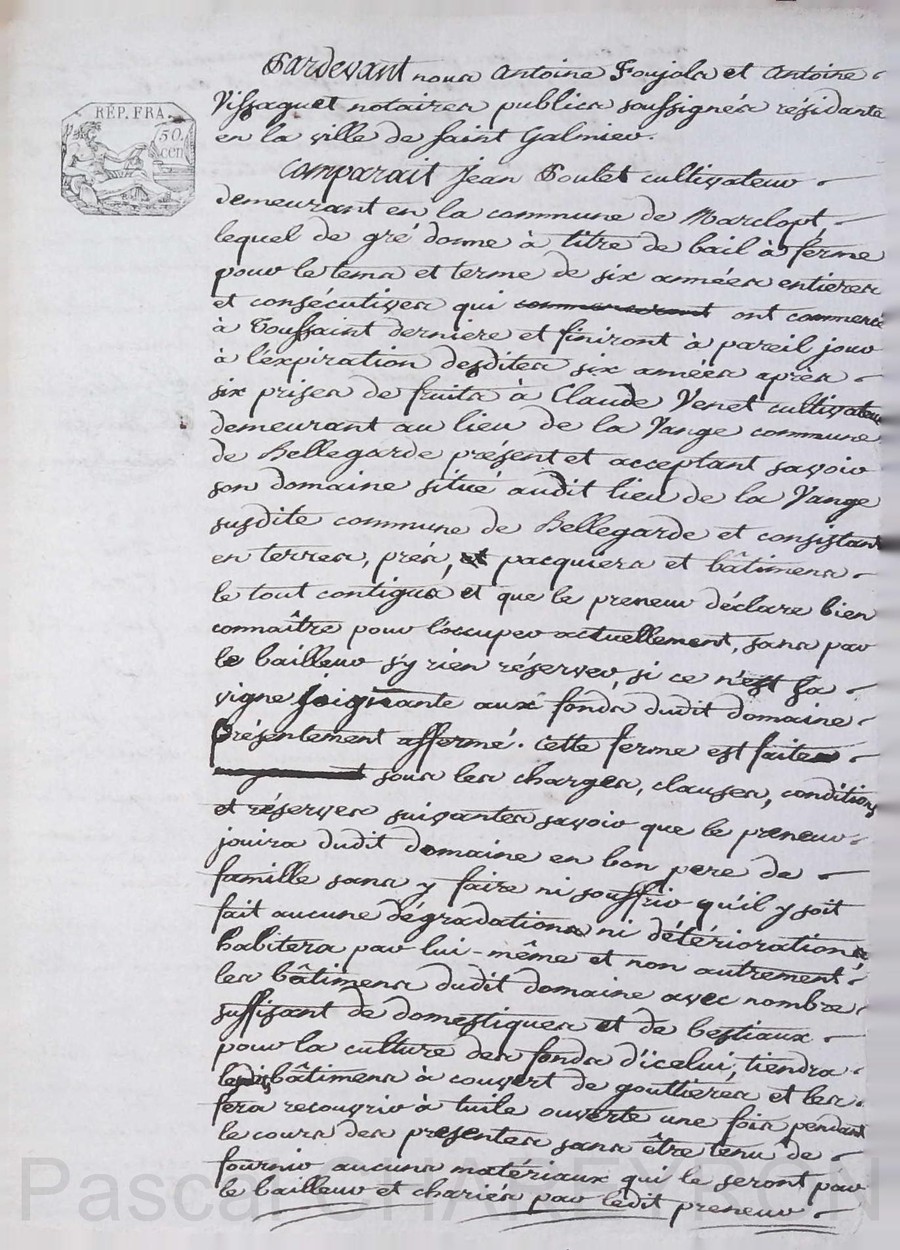 RÉP. FRA.
50.
cen
Pardevant nous Antoine Foujols et Antoine
Vissaguet notaires publics soussignés résidants
en la ville de saint Galmier.
Comparait Jean Poulet cultivateur
demeurant en la commune de Marclopt,
lequel de gré donne à titre de bail à ferme
pour le tems et terme de six années entieres
et consécutives qui ont commencé
à Toussaint derniere et finiront à pareil jour
à l'expiration desdites six années après
six prises de fruits à Claude Venet cultivateur
demeurant au lieu de la Vange commune
de Bellegarde présent et acceptant savoir
son domaine situé audit lieu de la Vange
susdite commune de Bellegarde et consistant
en terres, prés, et pacquiers et bâtimens
le tout contigus et que le preneur déclare bien
connaître pour l'occuper actuellement, sans par
le bailleur s'y rien réserver, si ce n'est sa
vigne joignante aux fonds dudit domaine
présentement affermé. Cette ferme est faite
sous les charges, clauses, conditions
et réserves suivantes savoir que le preneur
jouira dudit domaine en bon pere de
famille sans y faire ni souffrir qu'il y soit
fait aucune dégradations ni détériorations
habitera par lui-même et non autrement
les bâtimens dudit domaine avec nombre
suffisant de domestiques et de bestiaux
pour la culture des fonds d'icelui, tiendra
lesdits bâtimens à couvert de gouttieres et les
fera recouvrir à tuile ouverte une fois pendant
le cours des présentes sans être tenu de
fournir aucuns matériaux qui le seront par
le bailleur et chariés par ledit preneur
Pascal CHAREYRON